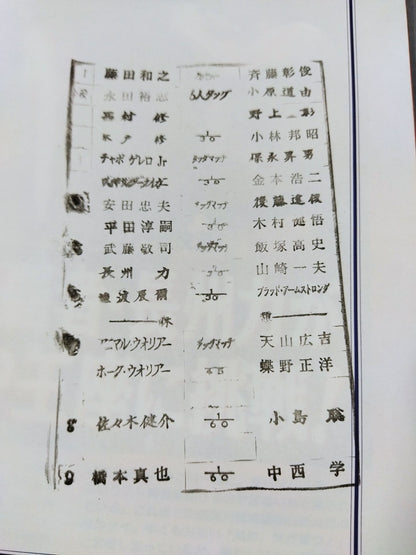 藤田和之 斉藤彰俊
永田裕志 6人タッグ 小原道由
西村 修 野上 彰
木戸 修 1/30 小林邦昭
チャボゲレロJr タッグマッチ 保永昇男
1/30 金本浩二
安田忠夫 タッグマッチ 後藤道俊
平田淳嗣 1/30 木村健悟
武藤敬司 タッグマッチ 飯塚高史
長州 力 1/30 山崎一夫
渡辰爾 1/30 ブラッド・アームストロング
休 憩
アニマル・ウオリアー タッグマッチ 天山広吉
ホーク・ウオリアー 60 蝶野正洋
8 佐々木健介 1/60 小島 聡
9 橋本真也 1/60 中西 学